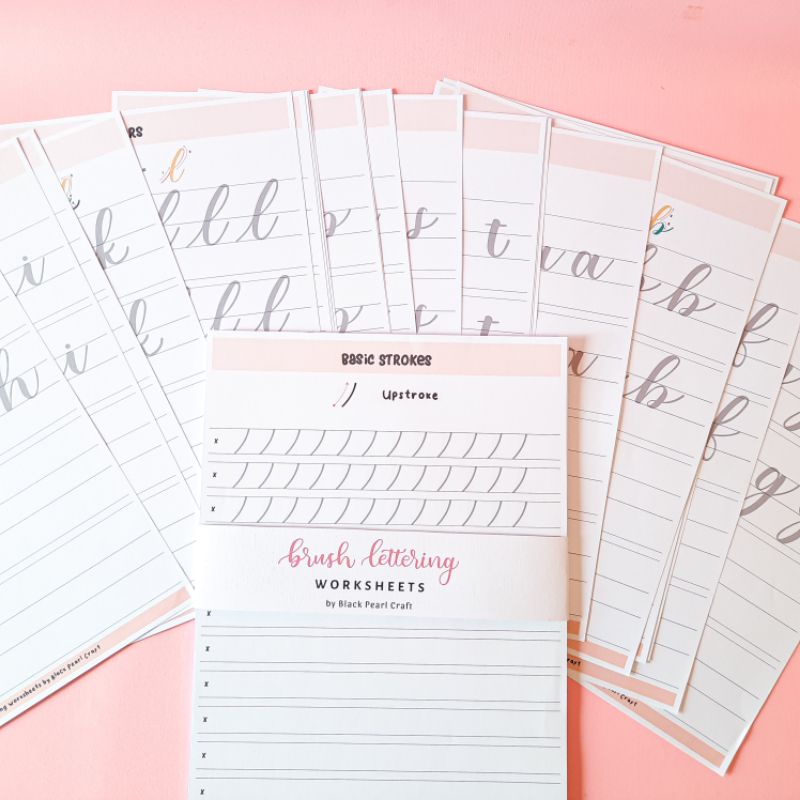 l
i
k
l l l
s
t
a
b
b
f
h i
k
l l
s
t
a
b
f
g
BASIC STROKES
Upstroke
x
x
x
brush lettering
WORKSHEETS
by Black Pearl Craft
x
x
x
x
x
x
worksheets by Black Pearl Craft
Craft
Craft